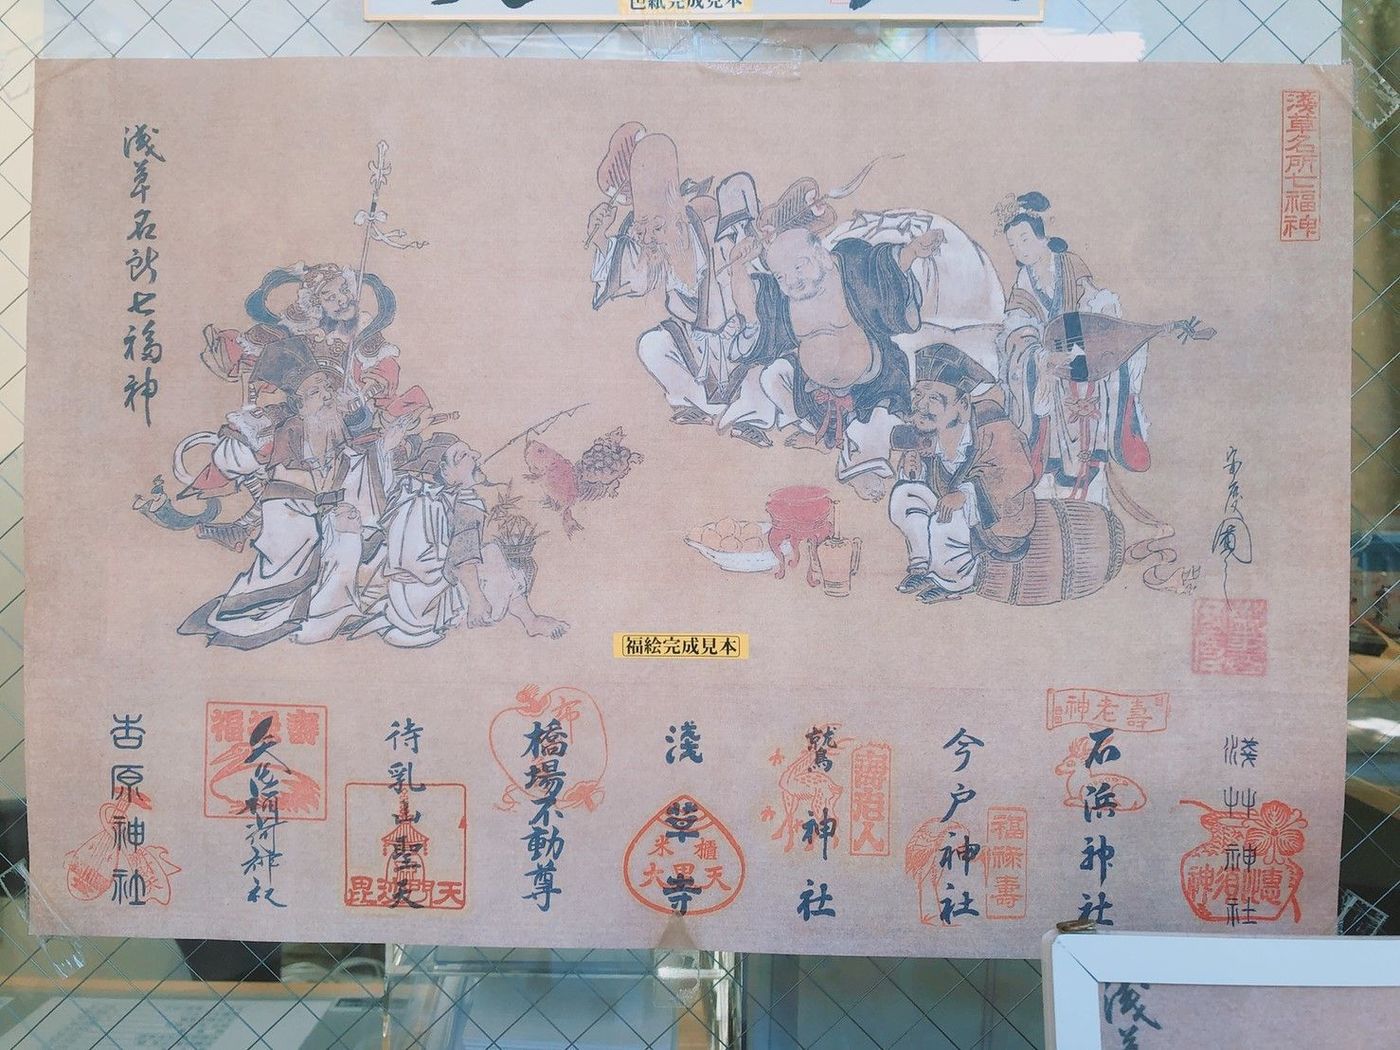 色紙完成見本
淺草名所七福神
浅草名所七福神
福絵完成見本
浅艸神社
惠
石浜神社
壽老神
今戸神社
福禄壽
鷲神社
壽老人
淺草寺
米櫃
大黒天
橋場不動尊
布
待乳山聖天
毘沙門天
矢先稲荷神社
福禄壽
吉原神社
浅
草